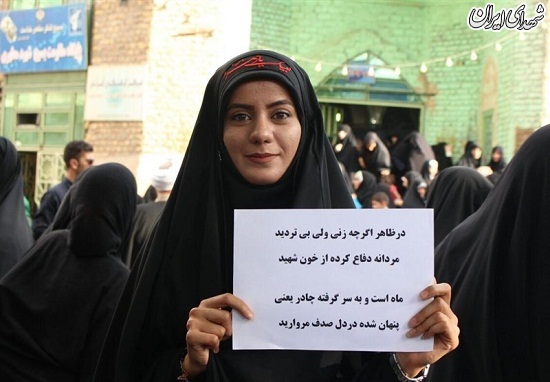 شهدای ایران
درظاهر اگرچه زنی ولی بی تردید
مردانه دفاع کرده از خون شهید
ماه است و به سر گرفته چادر یعنی
پنهان شده دردل صدف مروارید